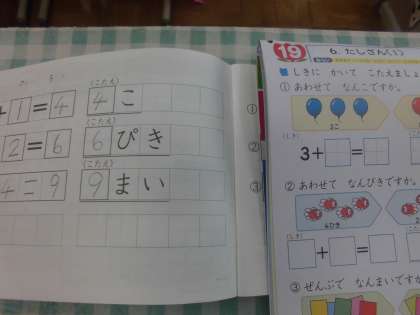 (こたえ)
+1=4 4こ
(こたえ)
2=6 6ぴき
(こたえ)
4=9 9まい
①
②
③
19 6. たしざん(1)
しきに かいて こたえましょ
① あわせて なんこですか。
3こ
(しき)
3+□=□
② あわせて なんびきですか。
4ひき
(しき)
□+□=□
③ ぜんぶで なんまいですか